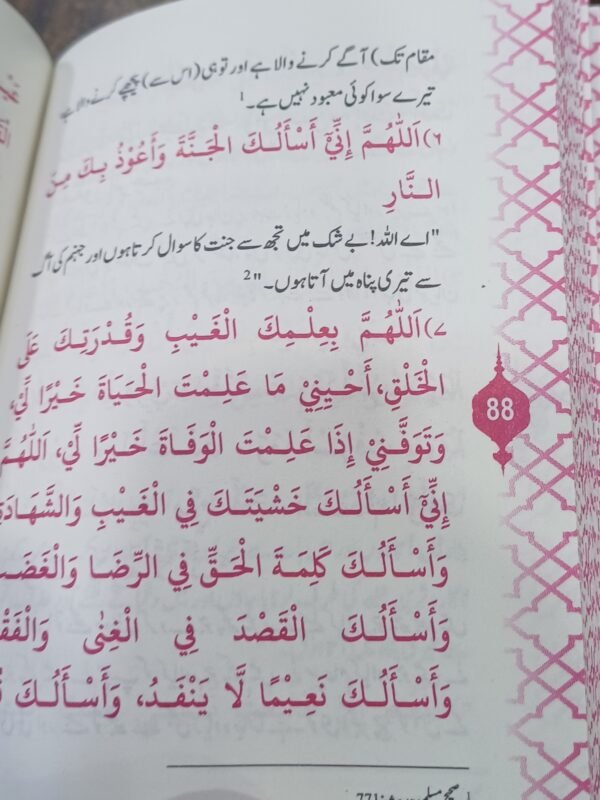 مقام تک) آگے کرنے والا ہے اور تو ہی (اس سے) پیچھے کرنے والا ہے
تیرے سوا کوئی معبود نہیں ہے۔ 1
٦) اَللّٰهُمَّ إِنِّيْٓ أَسْأَلُكَ الْجَنَّةَ وَأَعُوْذُ بِكَ مِنَ
النَّارِ
"اے اللہ! بے شک میں تجھ سے جنت کا سوال کرتا ہوں اور جہنم کی آگ
سے تیری پناہ میں آتا ہوں۔" 2
٧) اَللّٰهُمَّ بِعِلْمِكَ الْغَيْبِ وَقُدْرَتِكَ عَلَى
الْخَلْقِ، أَحْيِنِيْ مَا عَلِمْتَ الْحَيَاةَ خَيْرًا لِّيْ،
وَتَوَفَّنِيْ إِذَا عَلِمْتَ الْوَفَاةَ خَيْرًا لِّيْ، اَللّٰهُمَّ
إِنِّيْٓ أَسْأَلُكَ خَشْيَتَكَ فِي الْغَيْبِ وَالشَّهَادَ
وَأَسْأَلُكَ كَلِمَةَ الْحَقِّ فِي الرِّضَا وَالْغَضَب
وَأَسْأَلُكَ الْقَصْدَ فِي الْغِنٰى وَالْفَقْ
وَأَسْأَلُكَ نَعِيْمًا لَّا يَنْفَدُ، وَأَسْأَلُكَ
88